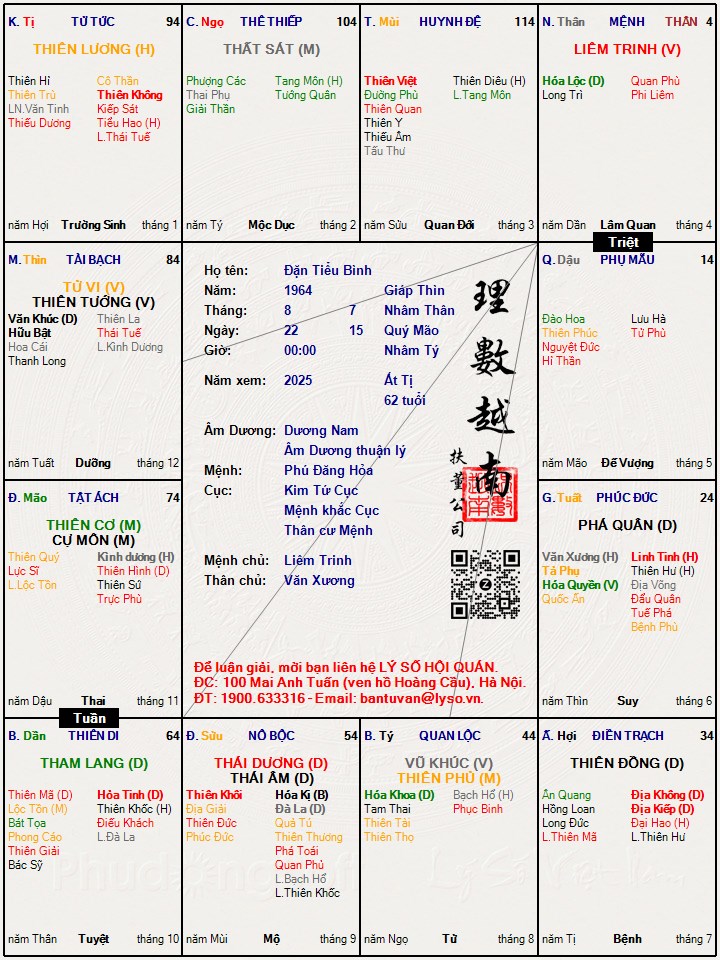 K. Tị TỬ TỨC 94
THIÊN LƯƠNG (H)
Thiên Hỉ Cô Thần
Thiên Trù Thiên Không
LN.Văn Tinh Kiếp Sát
Thiếu Dương Tiểu Hao (H)
L.Thái Tuế
năm Hợi Trường Sinh tháng 1
C. Ngọ THÊ THIẾP 104
THẤT SÁT (M)
Phượng Các Tang Môn (H)
Thai Phụ Tướng Quân
Giải Thần
năm Tý Mộc Dục tháng 2
T. Mùi HUYNH ĐỆ 114
Thiên Việt Thiên Diêu (H)
Đường Phù L.Tang Môn
Thiên Quan
Thiên Y
Thiếu Âm
Tấu Thư
năm Sửu Quan Đới tháng 3
N. Thân MỆNH THÂN 4
LIÊM TRINH (V)
Hóa Lộc (D) Quan Phù
Long Trì Phi Liêm
năm Dần Lâm Quan tháng 4
Triệt
M. Thìn TÀI BẠCH 84
TỬ VI (V)
THIÊN TƯỚNG (V)
Văn Khúc (D) Thiên La
Hữu Bật Thái Tuế
Hoa Cái L.Kình Dương
Thanh Long
năm Tuất Dưỡng tháng 12
Họ tên: Đặn Tiểu Bình
Năm: 1964 Giáp Thìn
Tháng: 8 7 Nhâm Thân
Ngày: 22 15 Quý Mão
Giờ: 00:00 Nhâm Tý
Năm xem: 2025 Ất Tị
62 tuổi
Âm Dương: Dương Nam
Âm Dương thuận lý
Mệnh: Phú Đăng Hỏa
Cục: Kim Tứ Cục
Mệnh khắc Cục
Thân cư Mệnh
Mệnh chủ: Liêm Trinh
Thân chủ: Văn Xương
理數越南
扶董公司
Để luận giải, mời bạn liên hệ LÝ SỐ HỘI QUÁN.
ĐC: 100 Mai Anh Tuấn (ven hồ Hoàng Cầu), Hà Nội.
ĐT: 1900.633316 - Email: bantuvan@lyso.vn.
Q. Dậu PHỤ MẪU 14
Đào Hoa Lưu Hà
Thiên Phúc Tử Phù
Nguyệt Đức
Hỉ Thần
năm Mão Đế Vượng tháng 5
Đ. Mão TẬT ÁCH 74
THIÊN CƠ (M)
CỰ MÔN (M)
Thiên Quý Kình dương (H)
Lực Sĩ Thiên Hình (D)
L.Lộc Tồn Thiên Sứ
Trực Phù
năm Dậu Thai tháng 11
Tuần
G. Tuất PHÚC ĐỨC 24
PHÁ QUÂN (D)
Văn Xương (H) Linh Tinh (H)
Tả Phụ Thiên Hư (H)
Hóa Quyền (V) Địa Võng
Quốc Ấn Đẩu Quân
Tuế Phá
Bệnh Phù
năm Thìn Suy tháng 6
B. Dần THIÊN DI 64
THAM LANG (D)
Thiên Mã (D) Hỏa Tinh (D)
Lộc Tồn (M) Thiên Khốc (H)
Bát Tọa Điếu Khách
Phong Cáo L.Đà La
Thiên Giải
Bác Sỹ
năm Thân Tuyệt tháng 10
Đ. Sửu NÔ BỘC 54
THÁI DƯƠNG (D)
THÁI ÂM (D)
Thiên Khôi Hóa Kị (B)
Địa Giải Đà La (D)
Thiên Đức Quả Tú
Phúc Đức Thiên Thương
Phá Toái
Quan Phủ
L.Bạch Hổ
L.Thiên Khốc
năm Mùi Mộ tháng 9
B. Tý QUAN LỘC 44
VŨ KHÚC (V)
THIÊN PHỦ (M)
Hóa Khoa (D) Bạch Hổ (H)
Tam Thai Phục Binh
Thiên Tài
Thiên Thọ
năm Ngọ Tử tháng 8
Ấ. Hợi ĐIỀN TRẠCH 34
THIÊN ĐỒNG (D)
Ân Quang Địa Không (D)
Hồng Loan Địa Kiếp (D)
Long Đức Đại Hao (H)
L.Thiên Mã L.Thiên Hư
năm Tị Bệnh tháng 7